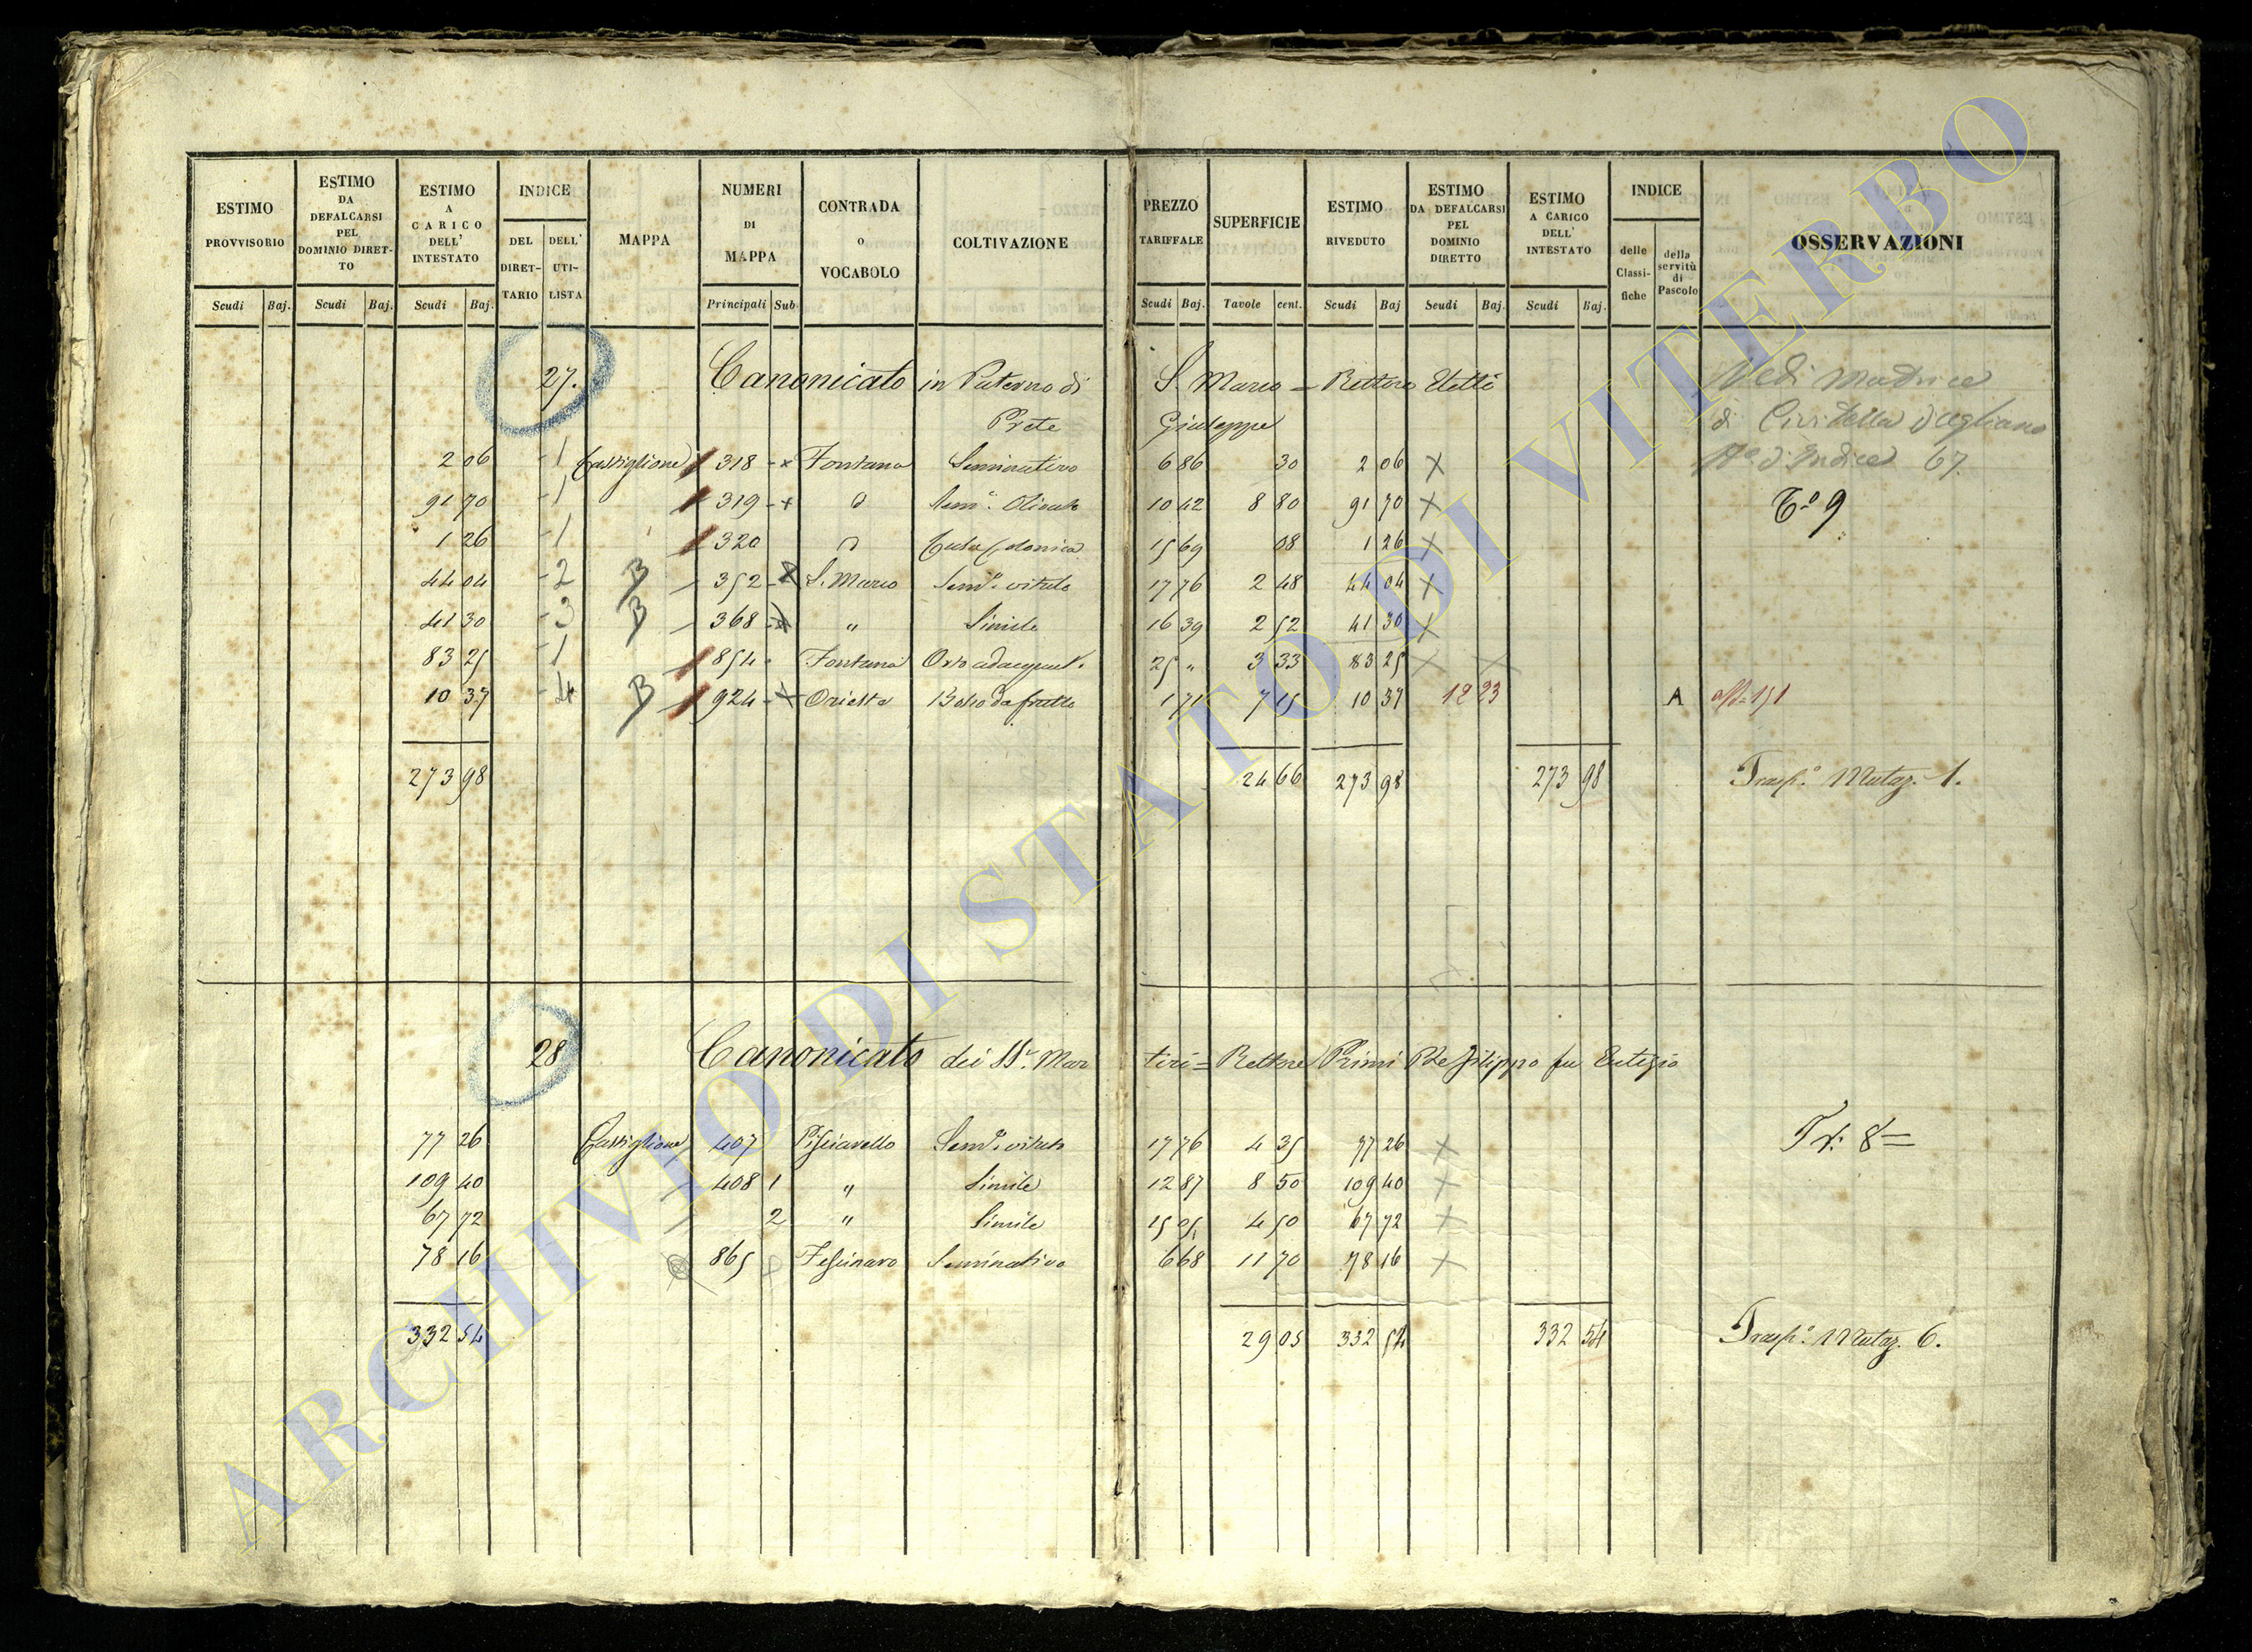 ESTIMO PROVVISORIO
ESTIMO DA DEFALCARSI PEL DOMINIO DIRETTO
ESTIMO A CARICO DELL' INTESTATO
INDICE DEL DIRETTARIO DELL' UTILISTA
MAPPA
NUMERI DI MAPPA
CONTRADA O VOCABOLO
COLTIVAZIONE
PREZZO TARIFFALE
SUPERFICIE
ESTIMO RIVEDUTO
ESTIMO DA DEFALCARSI PEL DOMINIO DIRETTO
ESTIMO A CARICO DELL' INTESTATO
INDICE delle Classifiche della servitù di Pascolo
OSSERVAZIONI
Scudi Baj. Scudi Baj. Scudi Baj. Principali Sub Scudi Baj. Tavole cent. Scudi Baj Scudi Baj. Scudi Baj.
27. Canonicato in Paterno di S. Marco = Rettore Vedi Madrice
Prete Giuseppe di Civitella d'Agliano
2 06 1 Castiglione 318 Fontana Seminativo 6 86 30 2 06 N.o d'Indice 67.
91 70 1 319 d Sem.o Olivato 10 42 8 80 91 70 T.o 9
1 26 1 320 d Casa Colonica 15 69 08 1 26
44 04 2 B 352 S. Marco Sem.o vitato 17 76 2 48 44 04
41 30 3 B 368 " Simile 16 39 2 52 41 30
83 25 1 854 Fontana Orto adacquat. 25 " 3 33 83 25
10 37 4 B 924 Bosco da frutto 1 71 7 15 10 37 12 23 A 151
273 98 24 66 273 98 273 98 Trasp.o Mutaz. 1.
28 Canonicato dei SS. Martiri = Rettore Primi Filippo fu Eutizio
77 26 Castiglione 407 Pisciarello Sem.o vitato 17 76 4 35 77 26 Tr. 8 =
109 40 408 1 " Simile 12 87 8 50 109 40
67 72 2 " Simile 15 05 4 50 67 72
78 16 865 Seminativo 6 68 11 70 78 16
332 54 29 05 332 54 332 54 Trasp.o Mutaz. 6.
ARCHIVIO DI STATO DI VITERBO